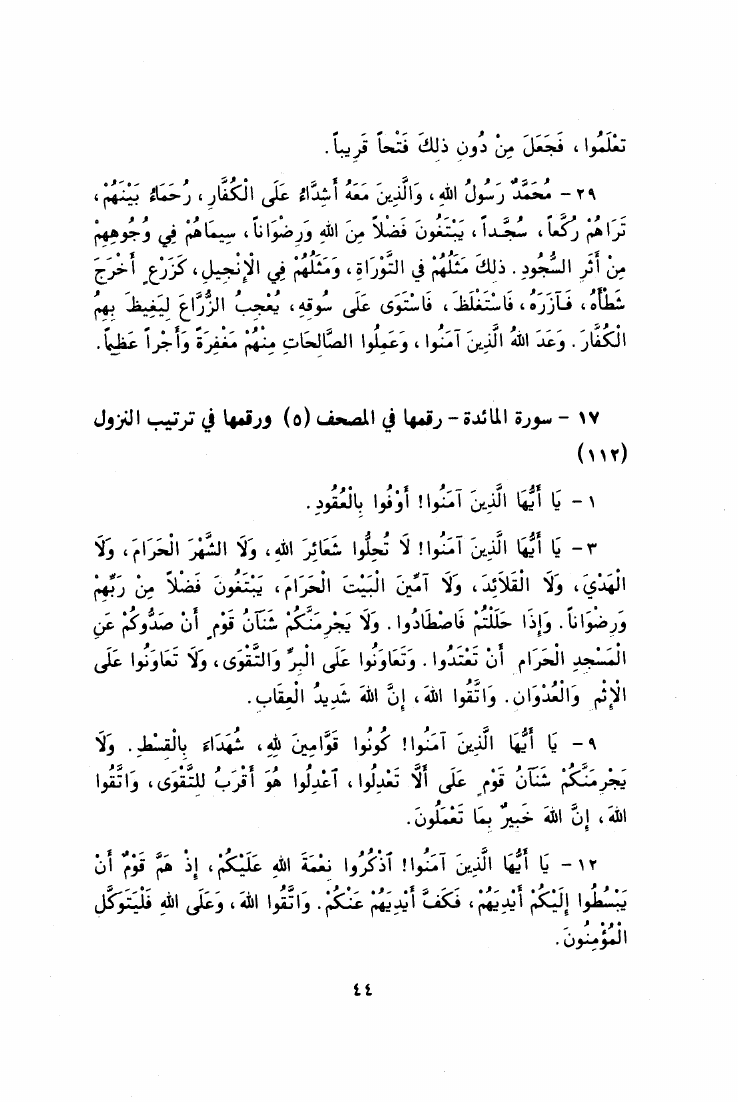 تَعْلَمُوا ، فَجَعَلَ مِنْ دُونِ ذلِكَ فَتْحاً قَرِيباً .
٢٩ - مُحَمَّدٌ رَسُولُ اللهِ ، وَالَّذِينَ مَعَهُ أَشِدَّاءُ عَلَى الْكُفَّارِ ، رُحَمَاءُ بَيْنَهُمْ ،
تَرَاهُمْ رُكَّعاً ، سُجَّداً ، يَبْتَغُونَ فَضْلاً مِنَ اللهِ وَرِضْوَاناً ، سِيمَاهُمْ فِي وُجُوهِهِمْ
مِنْ أَثَرِ السُّجُودِ . ذلكَ مَثَلُهُمْ فِي التَّوْرَاةِ ، وَمَثَلُهُمْ فِي الْإِنْجيلِ ، كَزَرْعٍ أَخْرَجَ
شَطْأَهُ ، فَـآزَرَهُ ، فَاسْتَغْلَظَ ، فَاسْتَوَى عَلَى سُوقِهِ ، يُعْجِبُ الزُّرَّاعَ لِيَغِيظَ بِهِمُ
الْكُفَّارَ . وَعَدَ اللهُ الَّذِينَ آمَنُوا ، وَعَمِلُوا الصَّالِحَاتِ مِنْهُمْ مَغْفِرَةً وَأَجْراً عَظِيماً .
١٧ - سورة المائدة - رقمها في المصحف (٥) ورقمها في ترتيب النزول
(١١٢)
١ - يَا أَيُّهَا الَّذِينَ آمَنُوا ! أَوْفُوا بِالْعُقُودِ .
٣ - يَا أَيُّهَا الَّذِينَ آمَنُوا ! لَا تُحِلُّوا شَعَائِرَ اللهِ ، وَلَا الشَّهْرَ الْحَرَامَ ، وَلَا
الْهَدْيَ ، وَلَا الْقَلَائِدَ ، وَلَا آمِّينَ الْبَيْتَ الْحَرَامَ ، يَبْتَغُونَ فَضْلاً مِنْ رَبِّهِمْ
وَرِضْوَاناً . وَإِذَا حَلَلْتُمْ فَاصْطَادُوا . وَلَا يَجْرِمَنَّكُمْ شَنَآنُ قَوْمٍ أَنْ صَدُّوكُمْ عَنِ
الْمَسْجِدِ الْحَرَامِ أَنْ تَعْتَدُوا . وَتَعَاوَنُوا عَلَى الْبِرِّ وَالتَّقْوَى ، وَلَا تَعَاوَنُوا عَلَى
الْإِثْمِ وَالْعُدْوَانِ . وَاتَّقُوا اللهَ ، إِنَّ اللهَ شَدِيدُ الْعِقَابِ .
٩ - يَا أَيُّهَا الَّذِينَ آمَنُوا ! كُونُوا قَوَّامِينَ لِلهِ ، شُهَدَاءَ بِالْقِسْطِ . وَلَا
يَجْرِمَنَّكُمْ شَنَآنُ قَوْمٍ عَلَى أَلَّا تَعْدِلُوا ، آعْدِلُوا هُوَ أَقْرَبُ للتَّقْوَى ، وَاتَّقُوا
اللهَ ، إِنَّ اللهَ خَبِيرٌ بِمَا تَعْمَلُونَ .
١٢ - يَا أَيُّهَا الَّذِينَ آمَنُوا ! آذْكُرُوا نِعْمَةَ اللهِ عَلَيْكُمْ ، إِذ هَمَّ قَوْمٌ أَنْ
يَبْسُطُوا إِلَيْكُمْ أَيْدِيَهُمْ ، فَكَفَّ أَيْدِيَهُمْ عَنْكُمْ . وَاتَّقُوا اللهَ ، وَعَلَى اللهِ فَلْيَتَوَكَّلِ
الْمُؤْمِنُونَ .
٤٤